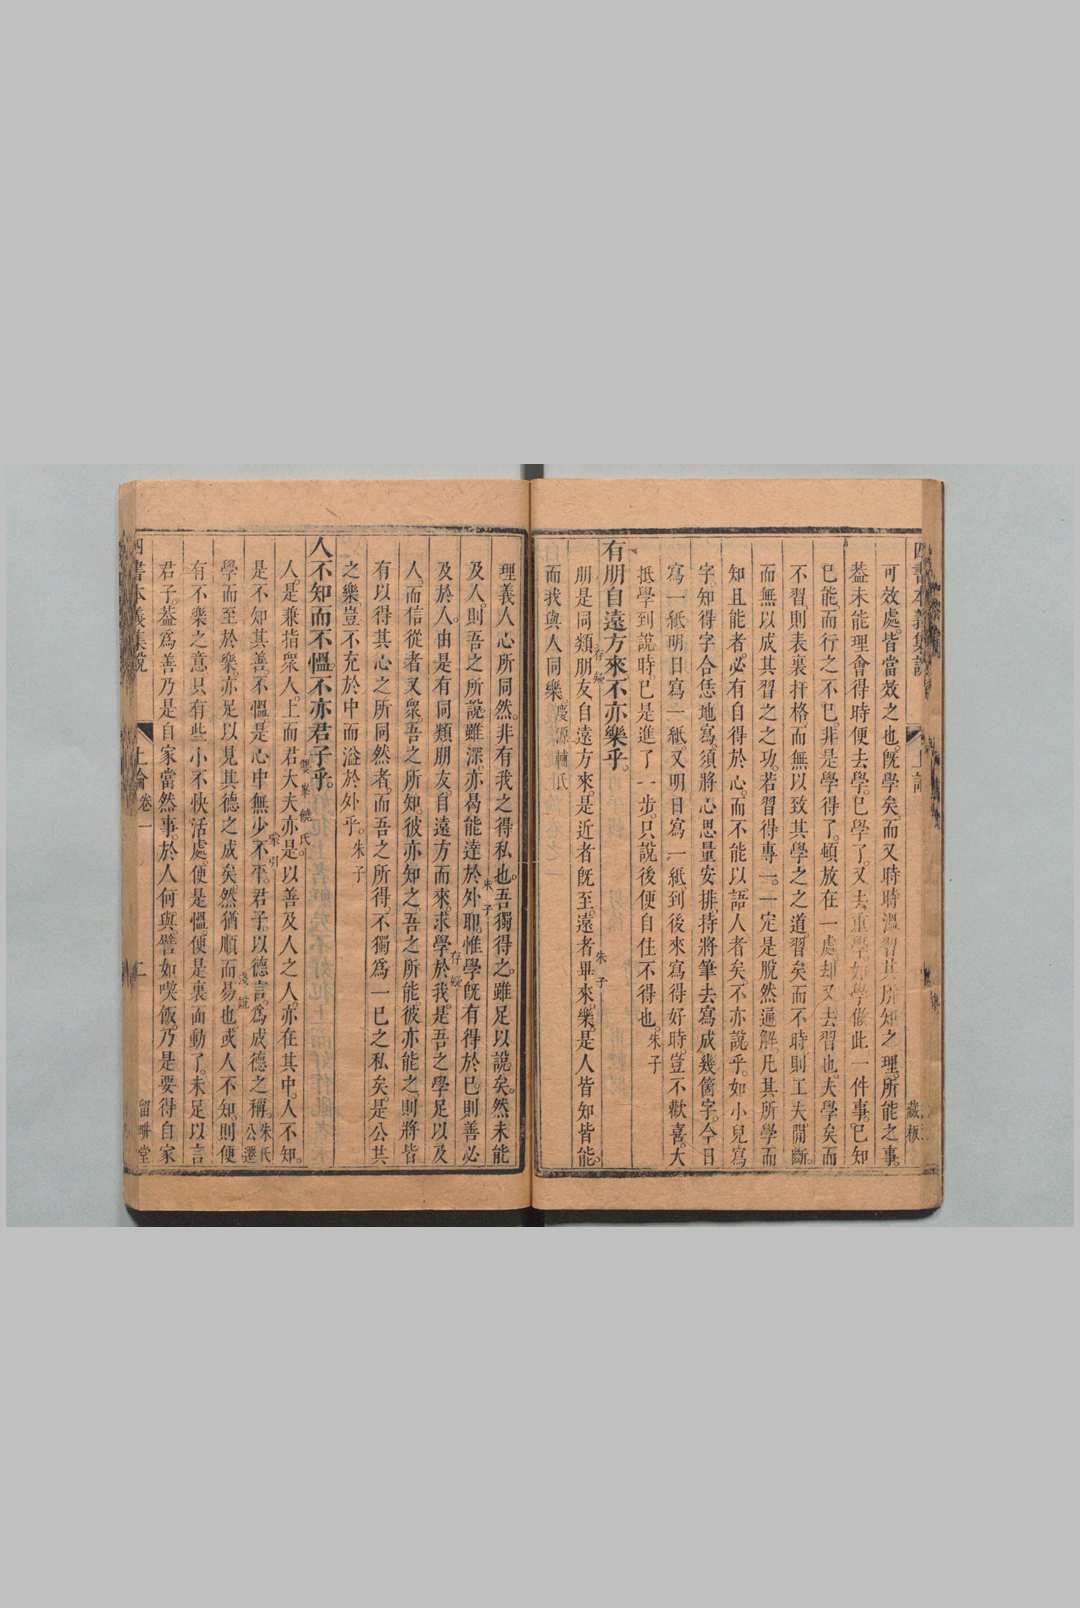 可效處皆當效之也旣學矣而又時時溫習其所知之理所能之事
葢未能理會得時便去學已學了又去重學如學做此一件事已知
已能而行之不已非是學得了頓放在一處却又去習也夫學矣而
不習則表裏扞格而無以致其學之之道習矣而不時則工夫間斷
而無以成其習之之功若習得專一一定是脫然通解凡其所學而
知且能者必有自得於心而不能以語人者矣不亦說乎如小兒寫
字知得字合恁地寫須將心思量安排持將筆去寫成幾箇字今日
寫一紙明日寫一紙又明日寫一紙到後來寫得好時豈不歡喜大
抵學到說時已是進了一步只說後便自住不得也朱子
有朋自遠方來不亦樂乎
朋是同類朋友自遠方來存疑是近者旣至遠者畢來樂朱子是人皆知皆能
而我與人同樂慶源輔氏
理義人心所同然非有我之得私也朱子吾獨得之雖足以說矣然未能
及人則吾之所說雖深亦曷能達於外耶惟學旣有得於已則善必
及於人由是有同類朋友自遠方而來求學於我存疑是吾之學足以及
人而信從者又衆吾之所知彼亦知之吾之所能彼亦能之則將皆
有以得其心之所同然者而吾之所得不獨爲一已之私矣是公共
之樂豈不充於中而溢於外乎朱子
人不知而不慍不亦君子乎
人是兼指衆人上而君大夫亦是雙峯饒氏以善及人之人亦在其中人不知
是不知其善不慍是心中無少不平蒙引君子以德言爲成德之稱朱氏公遷
學而至於樂亦足以見其德之成矣然猶順而易也淺說或人不知則便
有不樂之意只有些小不快活處便是慍便是裏面動了未足以言
君子葢爲善乃是自家當然事於人何與譬如喫飯乃是要得自家
四書本義集說
上論卷一
二
留畊堂
藏板